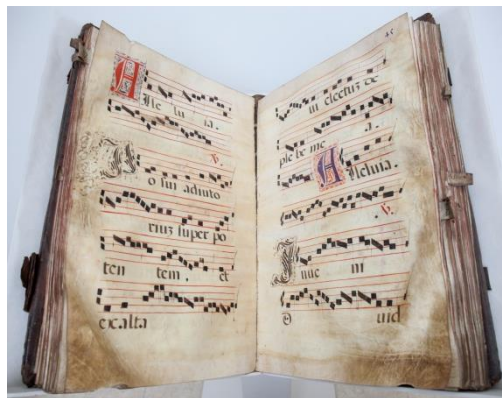 Alle lu ia.
℣.
Po sui adiuto
riuz super po
ten tem. et
exalta
ui electuz de
ple be me a.
Alleluia.
℣.
Inue ni
uid